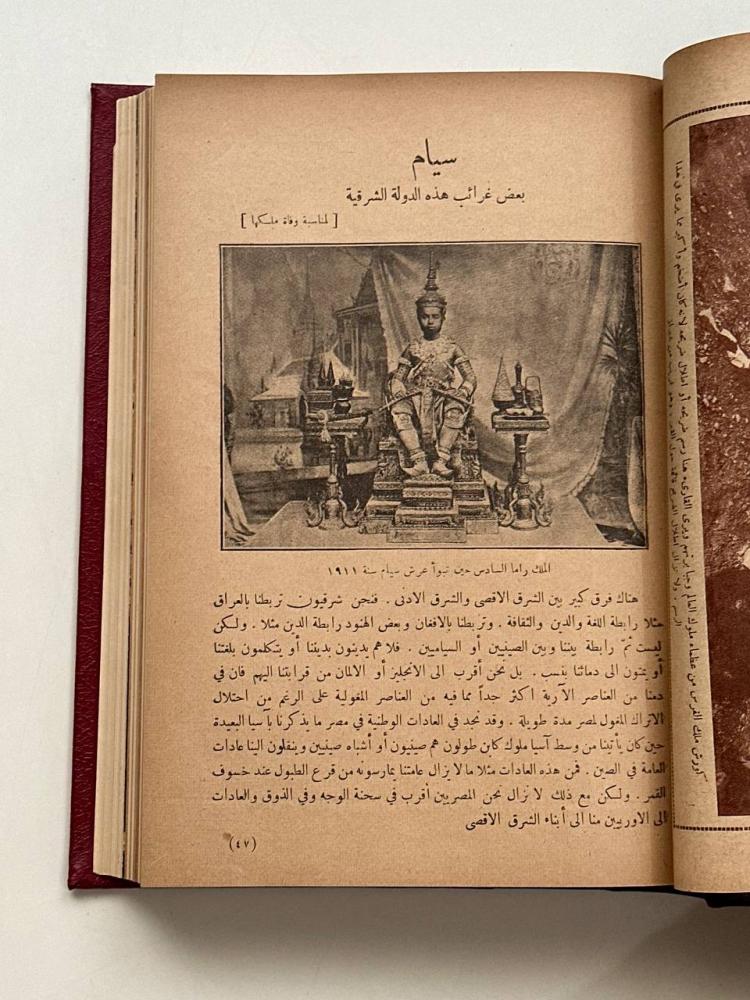 سيام
بعض غرائب هذه الدولة الشرقية
[ لمناسبة وفاة ملكها ]
الملك راما السادس حين تبوأ عرش سيام سنة ١٩١١
هناك فرق كبير بين الشرق الاقصى والشرق الادنى . فنحن شرقيون تربطنا بالعراق
مثلا رابطة اللغة والدين والثقافة . وتربطنا بالافغان وبعض الهنود رابطة الدين مثلا . ولكن
ليست ثمّ رابطة بيننا وبين الصينيين أو السياميين . فلا هم يدينون بديننا أو يتكلمون بلغتنا
أو يمتون الى دمائنا بنسب . بل نحن أقرب الى الانجليز أو الالمان من قرابتنا اليهم فان في
دمنا من العناصر الآرية اكثر جداً مما فيه من العناصر المغولية على الرغم من احتلال
الاتراك المغول لمصر مدة طويلة . وقد نجد في العادات الوطنية في مصر ما يذكرنا بآسيا البعيدة
حين كان يأتينا من وسط آسيا ملوك كابن طولون هم صينيون أو أشباه صينيين وينقلون الينا عادات
العامة في الصين . فمن هذه العادات مثلا ما لا يزال عامتنا يمارسونه من قرع الطبول عند خسوف
القمر . ولكن مع ذلك لا نزال نحن المصريين أقرب في سحنة الوجه وفي الذوق والعادات
الى الاوربيين منا الى أبناء الشرق الاقصى
(٤٧)
كورش ملك الفرس من عظماء ملوك العالم وجبابرتهم ويرى القارىء هنا رسم ضريحه أو اطلال ضريحه لانه كان أفخم وأكبر مما يرى في هذا